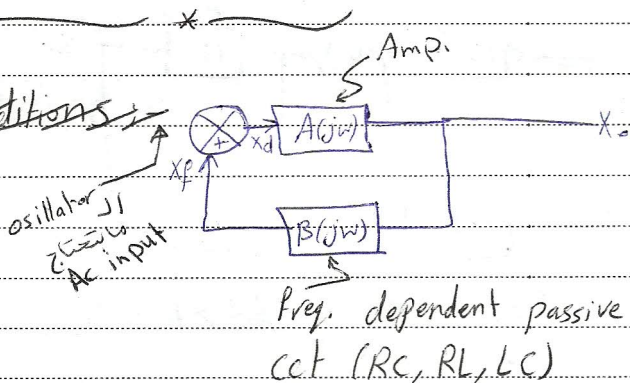 *
Amp.
ditions :-
+
Xd
A(jw)
Xo
Xf
osillator ال
مابتحتاج
Ac input
B(jw)
freq. dependent passive
cct (RC, RL, LC)